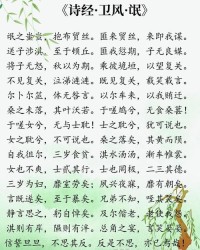 《诗经·卫风·氓》
氓之蚩蚩，抱布贸丝。匪来贸丝，来即我谋。
送子涉淇，至于顿丘。匪我愆期，子无良媒。
将子无怒，秋以为期。乘彼垝垣，以望复关。
不见复关，泣涕涟涟。既见复关，载笑载言。
尔卜尔筮，体无咎言。以尔车来，以我贿迁。
桑之未落，其叶沃若。于嗟鸠兮，无食桑葚！
于嗟女兮，无与士耽！士之耽兮，犹可说也。
女之耽兮，不可说也。桑之落矣，其黄而陨。
自我徂尔，三岁食贫。淇水汤汤，渐车帷裳。
女也不爽，士贰其行。士也罔极，二三其德。
三岁为妇，靡室劳矣；夙兴夜寐，靡有朝矣。
言既遂矣，至于暴矣。兄弟不知，咥其笑矣。
静言思之，躬自悼矣。及尔偕老，老使我怨。
淇则有岸，隰则有泮。总角之宴，言笑晏晏。
信誓旦旦，不思其反。反是不思，亦已焉哉！